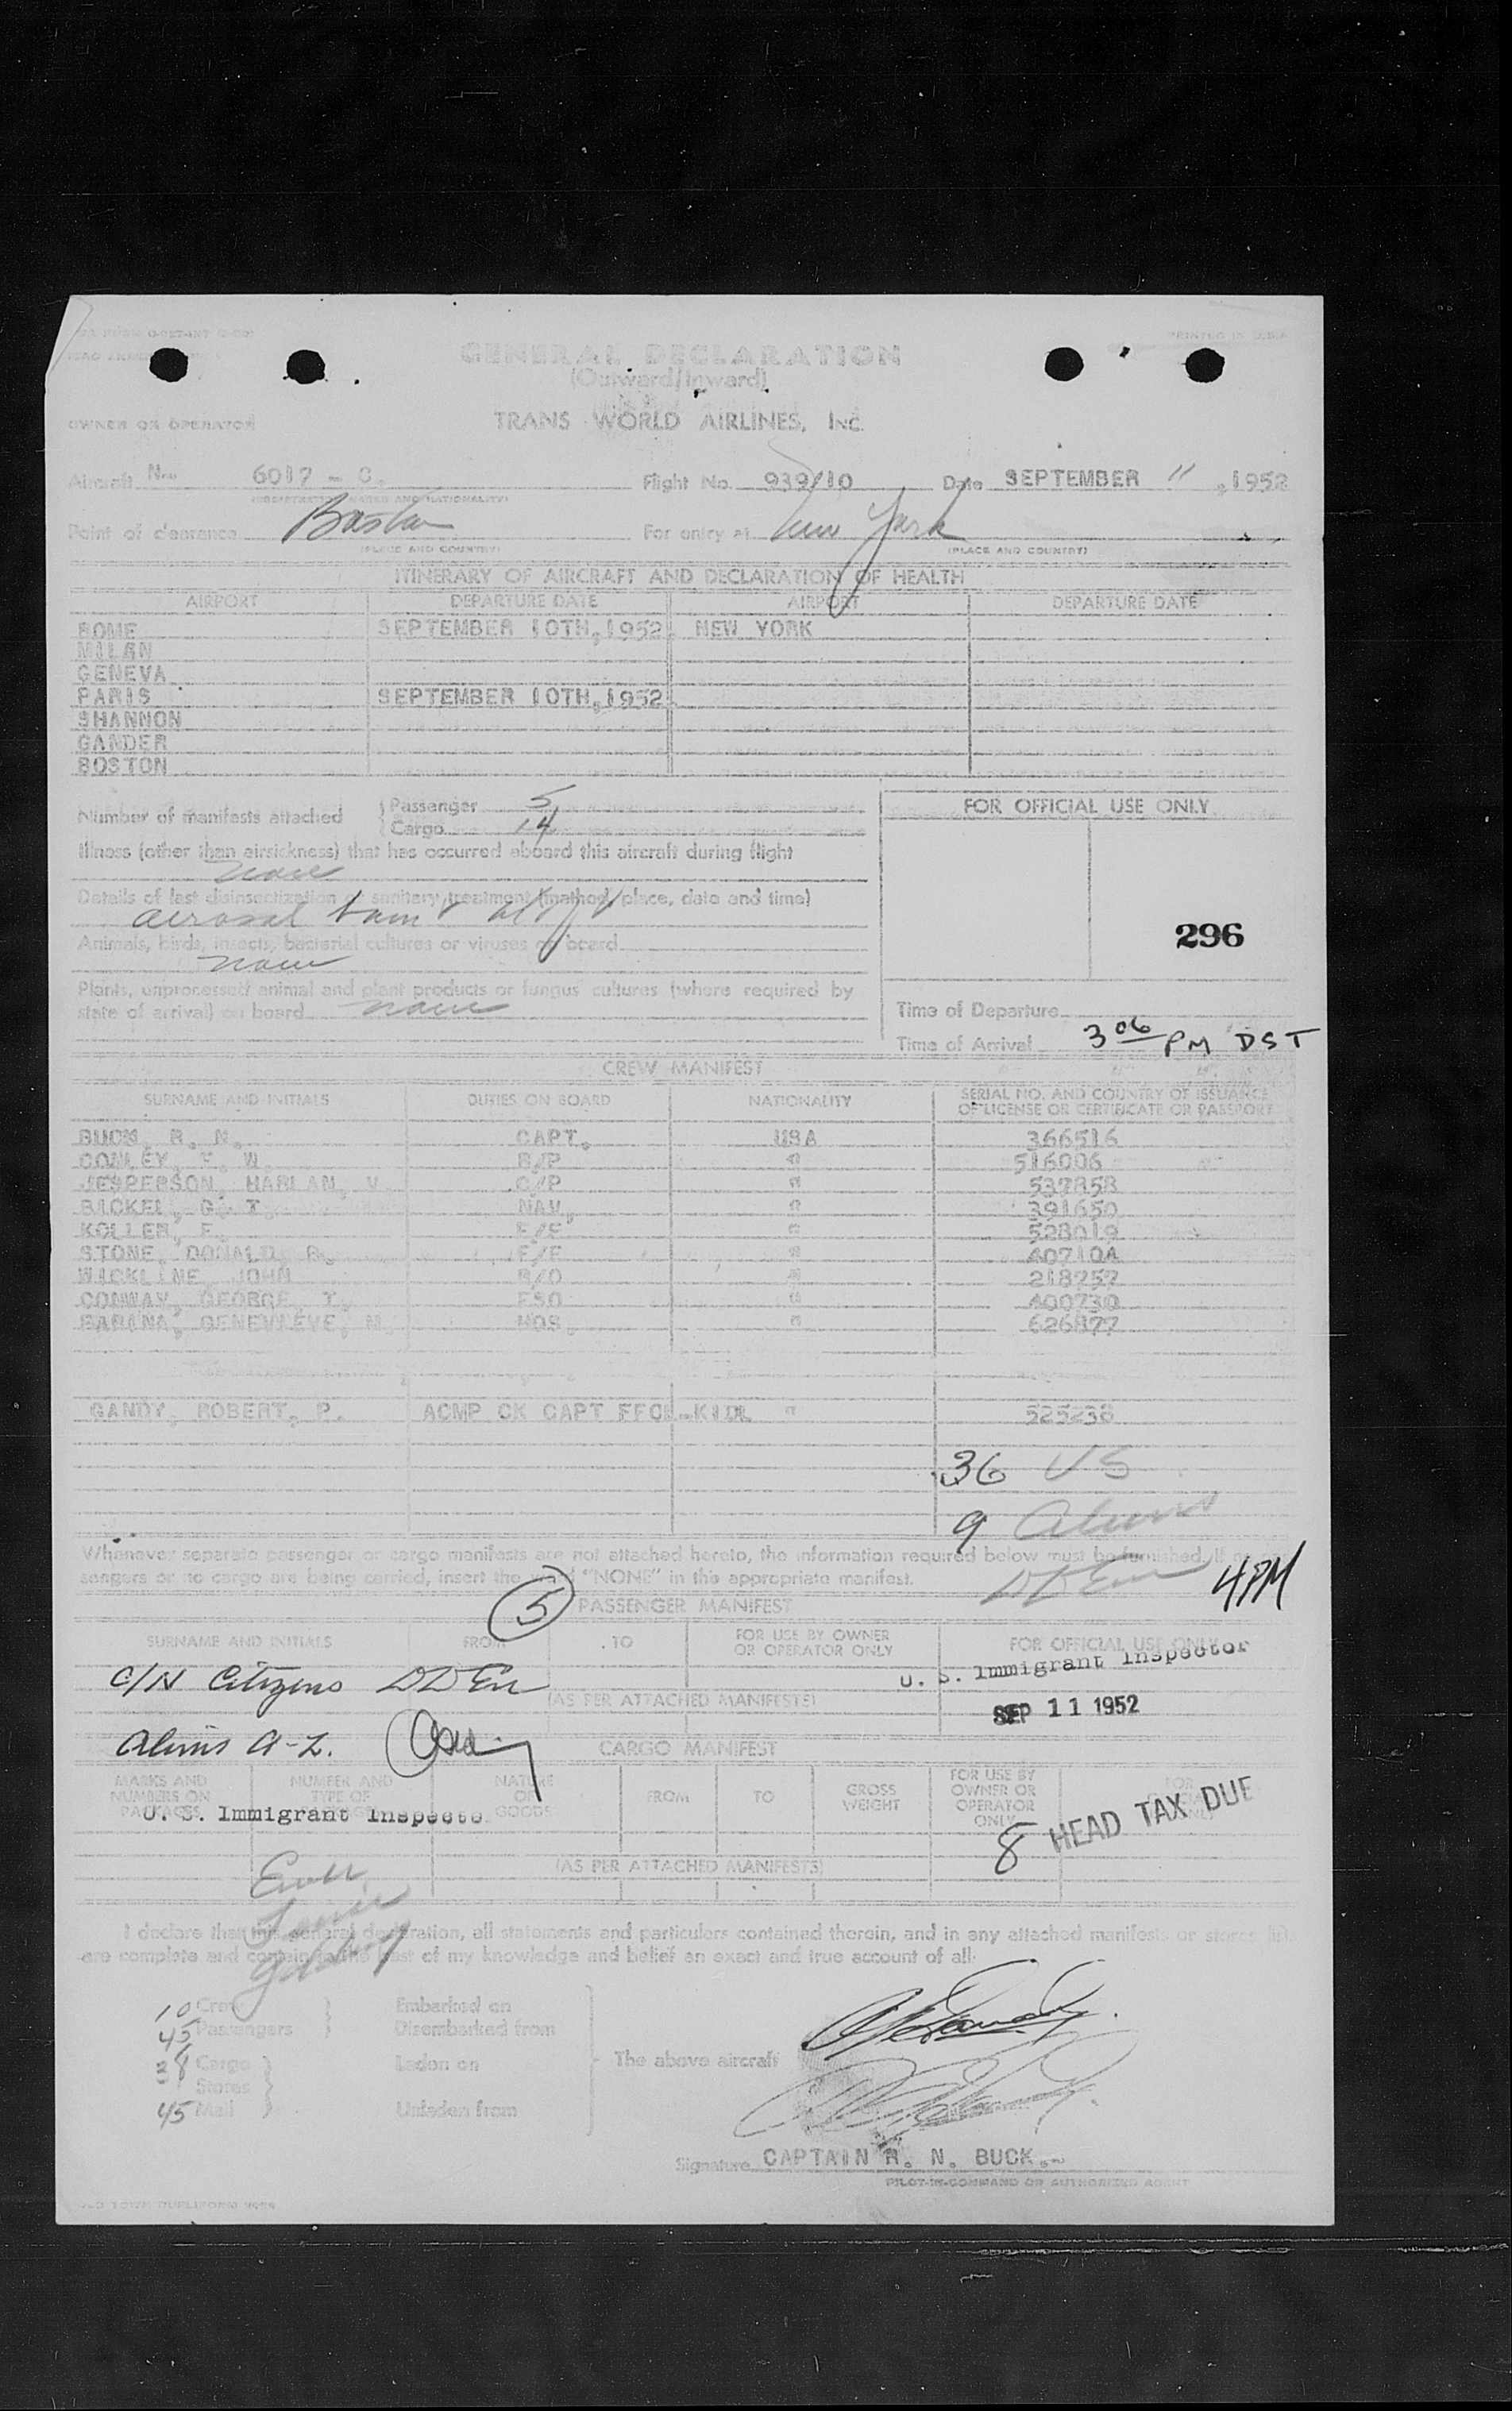 PRINTED IN U.S.A.
GENERAL DECLARATION
(Outward/Inward)
OWNER OR OPERATOR TRANS WORLD AIRLINES, INC.
Aircraft No. 6017 - C. Flight No. 939/10 Date SEPTEMBER 11, 1952
Point of clearance Boston For entry at New York
(PLACE AND COUNTRY) (PLACE AND COUNTRY)
ITINERARY OF AIRCRAFT AND DECLARATION OF HEALTH
AIRPORT DEPARTURE DATE AIRPORT DEPARTURE DATE
ROME SEPTEMBER 10TH,1952. NEW YORK
MILAN
GENEVA
PARIS SEPTEMBER 10TH,1952.
SHANNON
GANDER
BOSTON
Number of manifests attached Passenger 5
Cargo 14
FOR OFFICIAL USE ONLY
Illness (other than airsickness) that has occurred aboard this aircraft during flight
none
Details of last disinsectization or sanitary treatment (method, place, date and time)
aerosol bomb
296
Animals, birds, insects, bacterial cultures or viruses on board
none
Plants, unprocessed animal and plant products or fungus cultures (where required by
state of arrival) on board none
Time of Departure
Time of Arrival 3 06 PM DST
CREW MANIFEST
SURNAME AND INITIALS DUTIES ON BOARD NATIONALITY SERIAL NO. AND COUNTRY OF ISSUANCE
OF LICENSE OR CERTIFICATE OR PASSPORT
BUCK, R. N. CAPT. USA 366516
CONLEY, W. " 516006
JESPERSON, HARLAN, V. " 537858
BICKEL, G. T. NAV. " 391650
KOLLER, F. F/E " 528019
STONE, DONALD, R. F/E " 407104
WICKLINE, JOHN R/O " 218757
CONWAY, GEORGE, T. FSO " 400730
GENEVIEVE, M. HOS. " 626877
GANDY, ROBERT, P. ACMP CK CAPT " 525238
36 US
9 Aliens
Whenever separate passenger or cargo manifests are not attached hereto, the information required below must be furnished. If
sengers or no cargo are being carried, insert the "NONE" in the appropriate manifest.
4PM
5 PASSENGER MANIFEST
SURNAME AND INITIALS FROM TO FOR USE BY OWNER
OR OPERATOR ONLY FOR OFFICIAL USE ONLY
U. S. Immigrant Inspector
C/N Citizens
(AS PER ATTACHED MANIFESTS)
SEP 11 1952
Aliens A-Z.
CARGO MANIFEST
MARKS AND
NUMBERS ON
PACKAGES NUMBER AND
TYPE OF NATURE
OF
GOODS FROM TO GROSS
WEIGHT FOR USE BY
OWNER OR
OPERATOR
ONLY
U. S. Immigrant Inspecto
8 HEAD TAX DUE
(AS PER ATTACHED MANIFESTS)
I declare that this general declaration, all statements and particulars contained therein, and in any attached manifests or stores
are complete and contain to the best of my knowledge and belief an exact and true account of all:
10 Crew Embarked on
45 Passengers Disembarked from
38 Cargo Laden on The above aircraft
Stores
45 Mail Unladen from
Signature CAPTAIN R. N. BUCK.
PILOT-IN-COMMAND OR AUTHORIZED AGENT